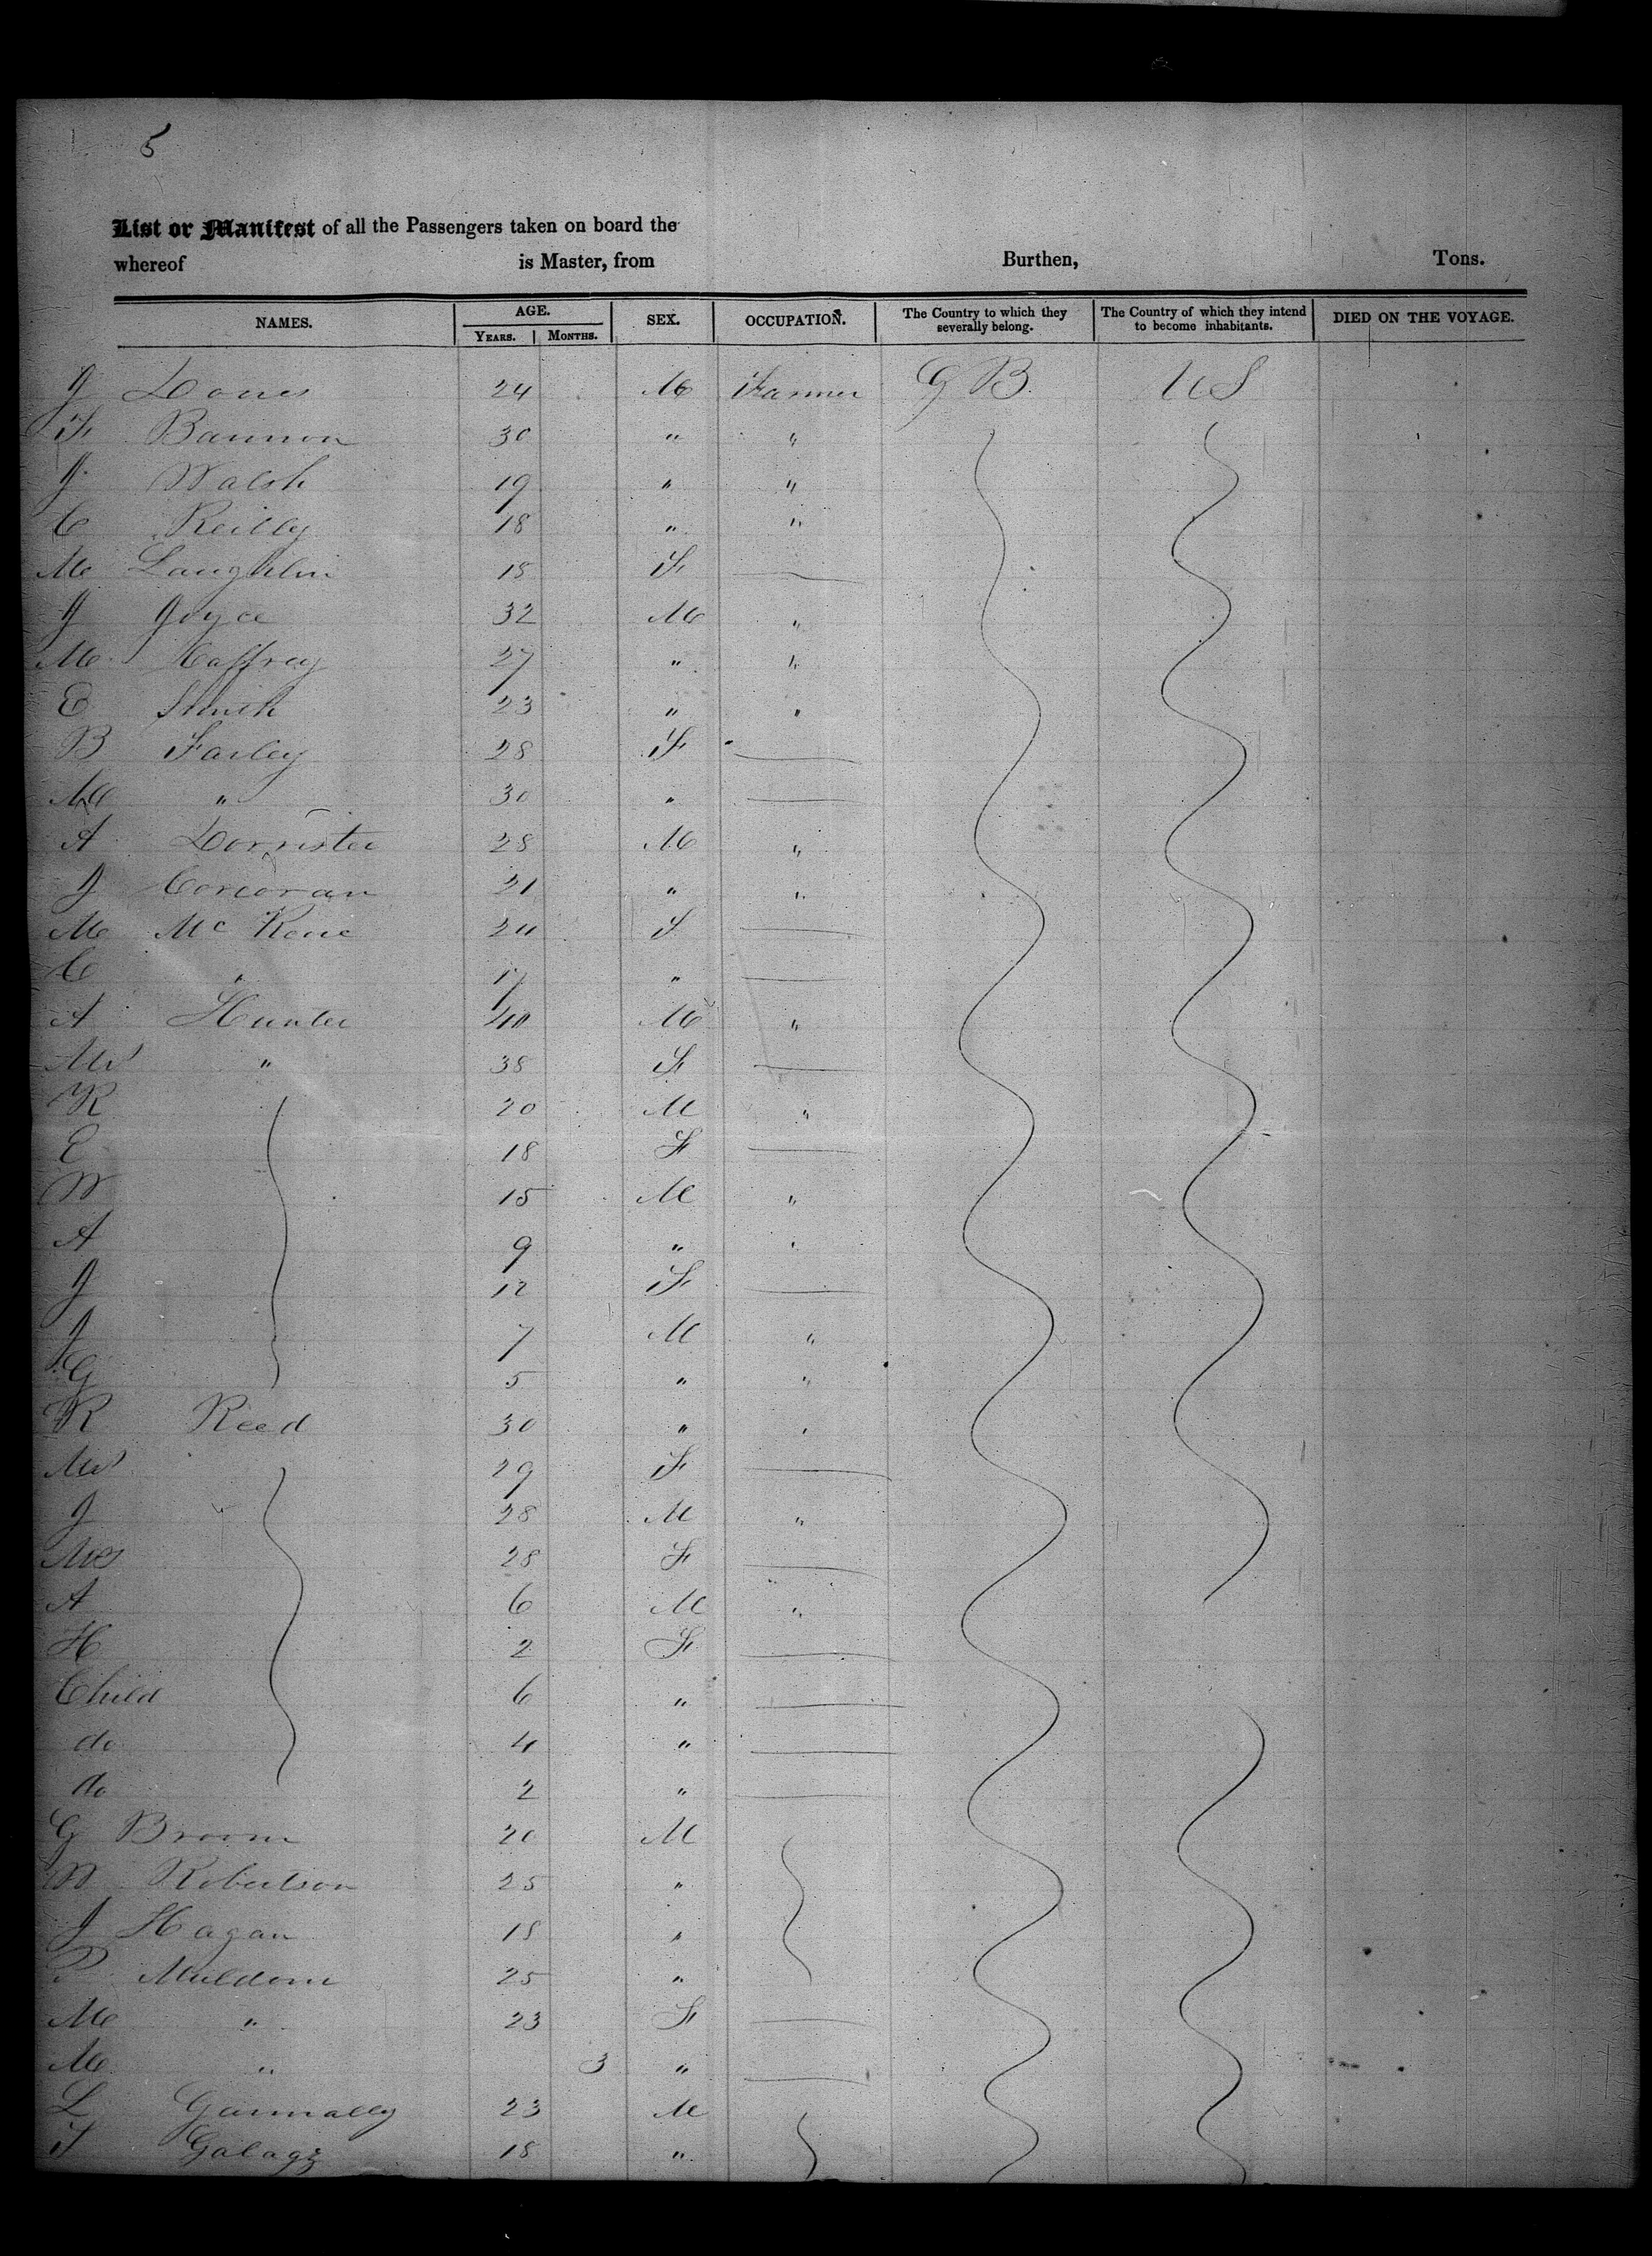 5
List or Manifest of all the Passengers taken on board the
whereof is Master, from Burthen, Tons.
NAMES. AGE. SEX. OCCUPATION. The Country to which they severally belong. The Country of which they intend to become inhabitants. DIED ON THE VOYAGE.
YEARS. MONTHS.
J 24 M Farmer G B. U S
F Bannon 30 " "
J Walsh 19 " "
C Reilly 18 " "
M Laughlin 18 F
J Joyce 32 M "
M Caffrey 27 " "
E Smith 23 " "
B Farley 28 F
M " 30 "
A 28 M "
J Corcoran 21 " "
M Mc 24 F
C " 17 "
A Hunter 40 M "
Mrs " 38 F
R 20 M "
E 18 F
W 15 M "
A 9 " "
J 12 F
J 7 M "
G 5 " "
R Reed 30 " "
Mrs 29 F
J 28 M "
Mrs 28 F
A 6 M "
H 2 F
Child 6 "
do 4 "
do 2 "
G Broom 20 M
W Robertson 25 "
J Hagan 18 "
P Muldoon 25 "
M " 23 F
M " 3 "
L Gannally 23 M
18 "